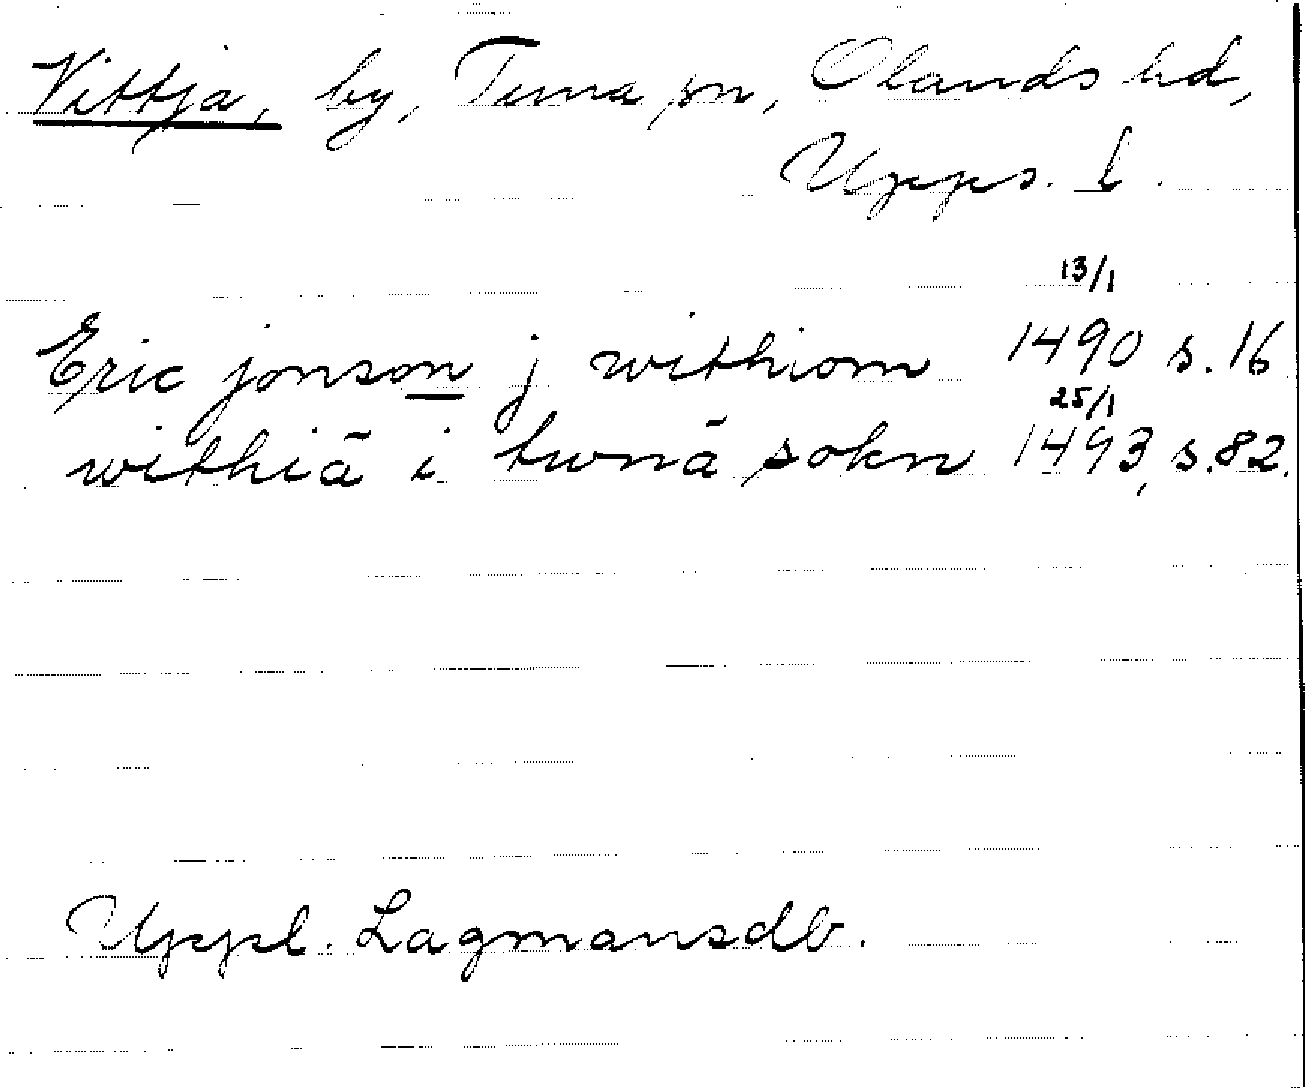 Vittja, by, Tuna sn, Olands hd,
Upps. l.
13/1
Eric jonson j withiom 1490 s. 16
25/1
withiā i twnā sokn 1493, s. 82.
Uppl. Lagmansdb.